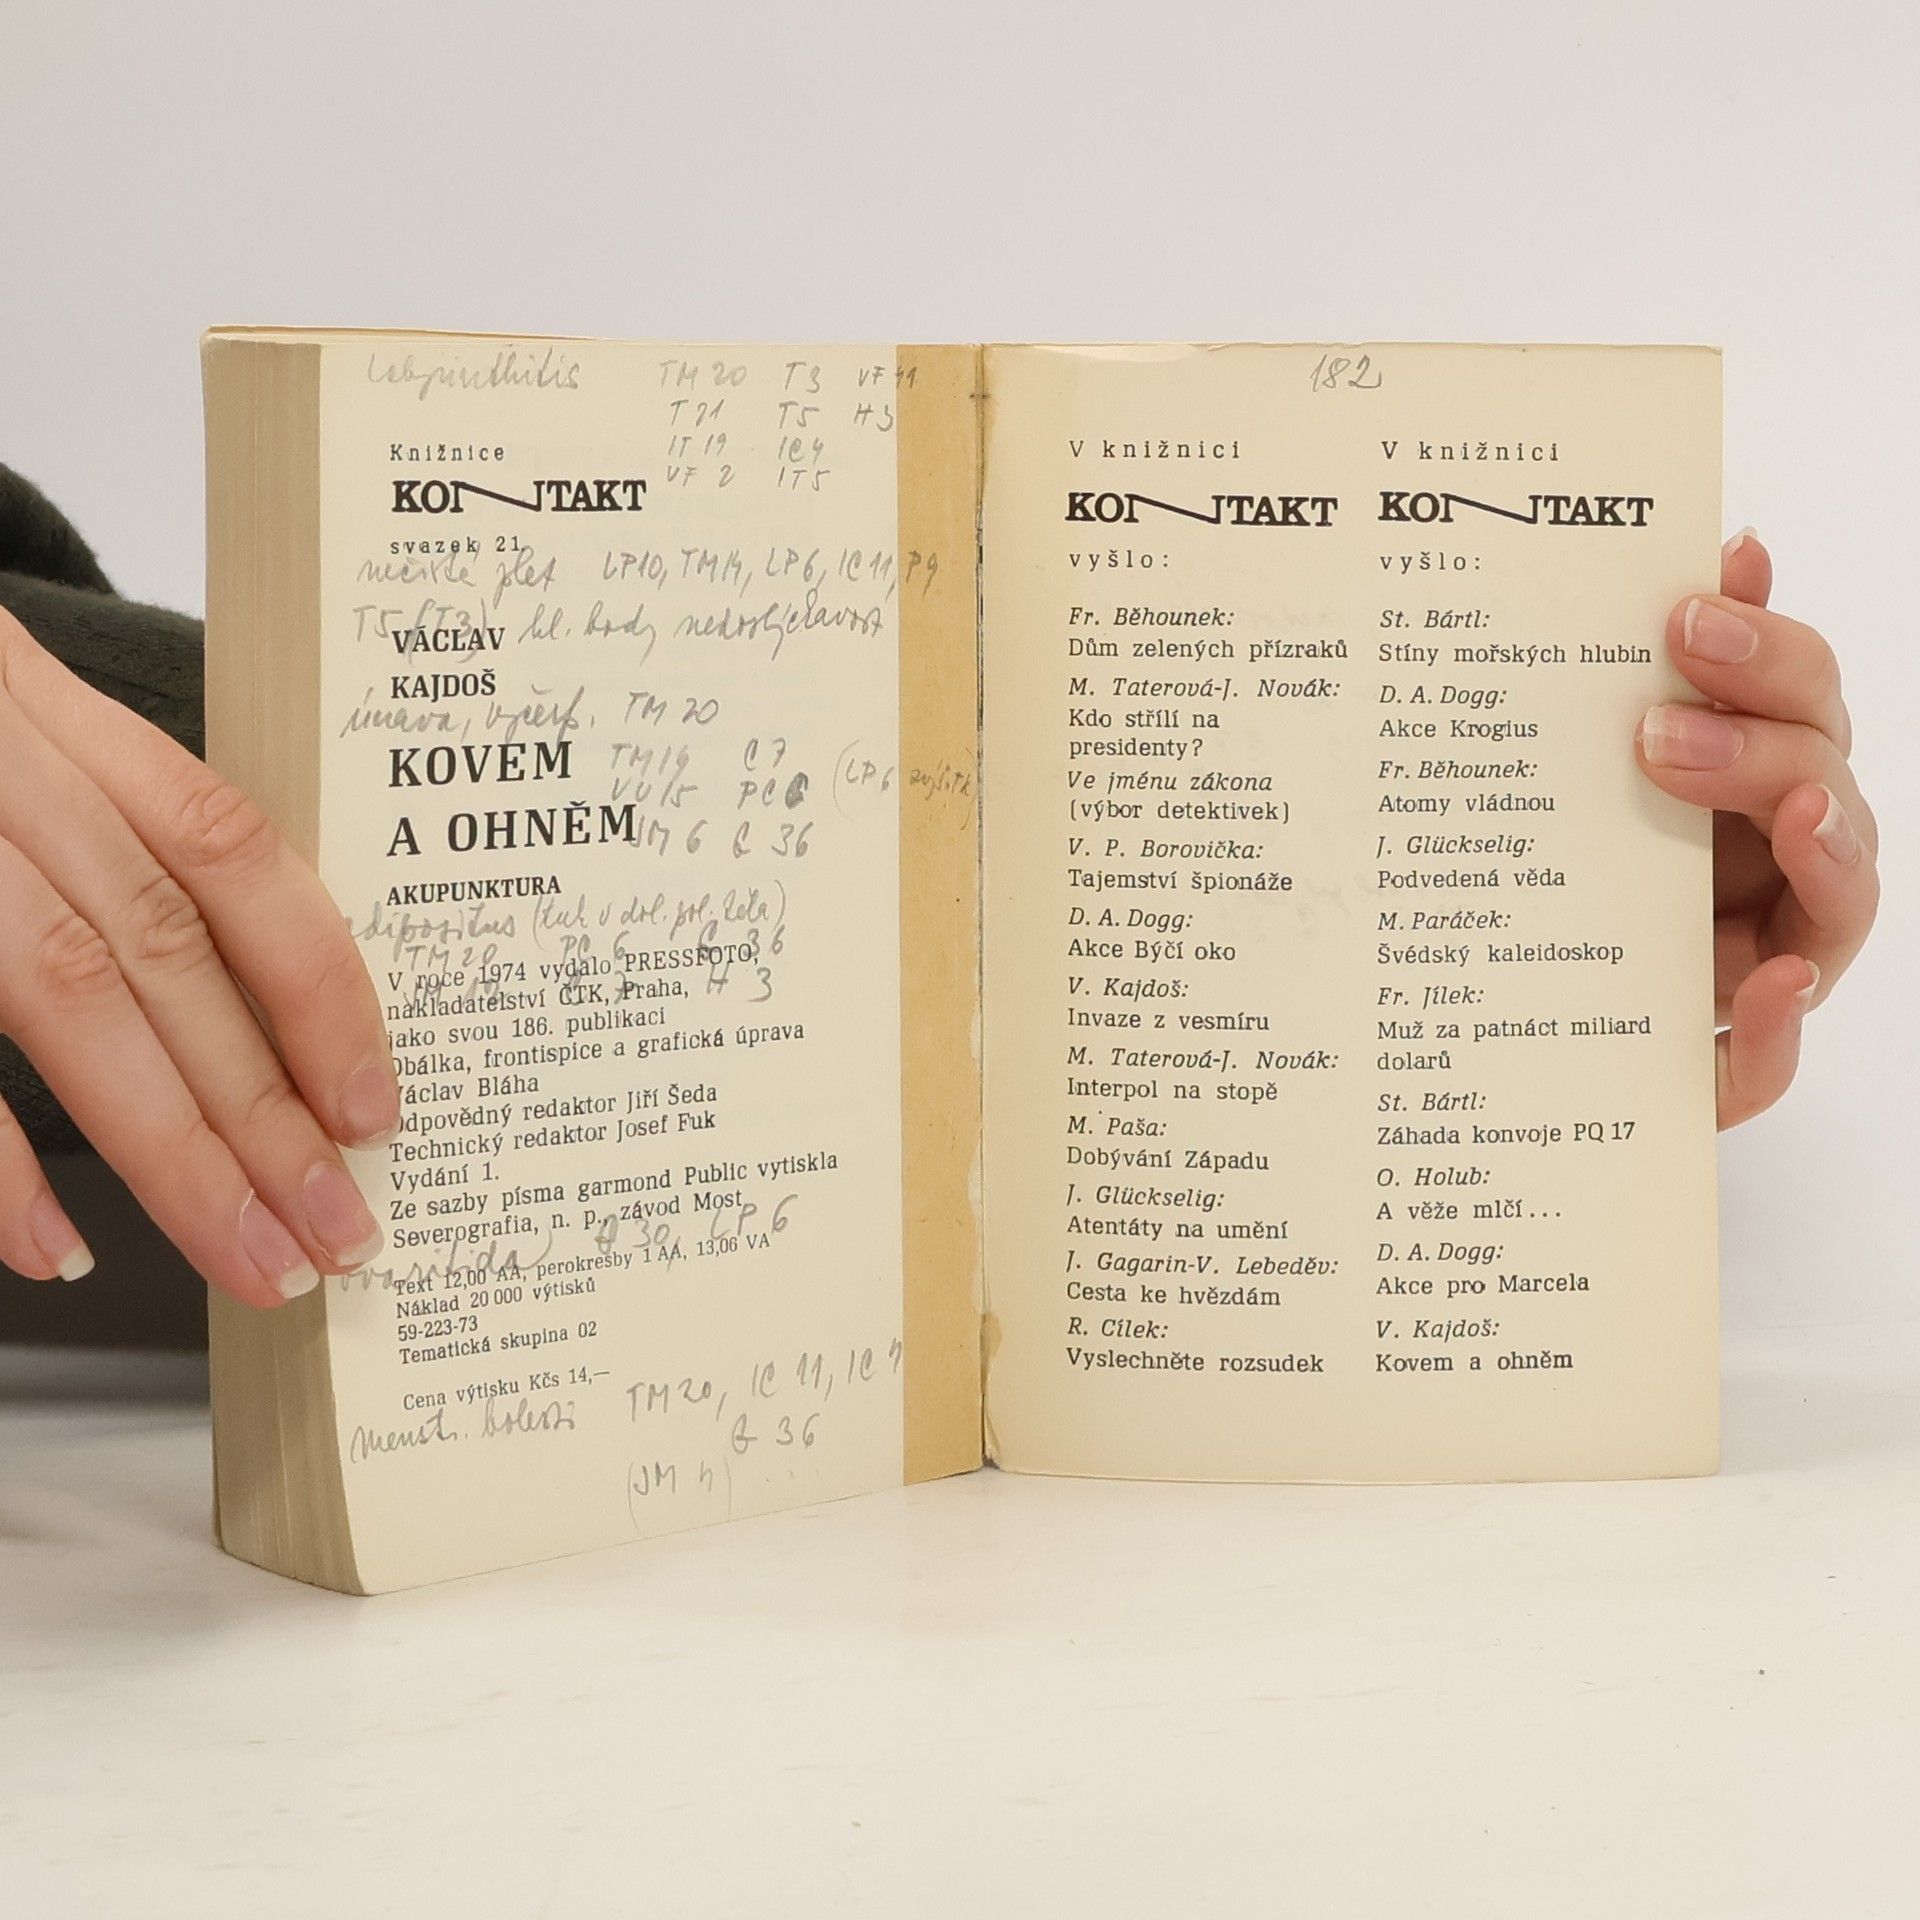 TM 20 T3
T5 H3
IT 19 IC4
Knižnice
VF 2 IT5
KONTAKT
svazek 21
LP10, TM14, LP6, IC 11, P9
T5 (T3) hl. body nedoslýchavost
VÁCLAV
KAJDOŠ
únava, vyčerp. TM 20
KOVEM
TM 14 C 7
A OHNĚM
JM 6 36
AKUPUNKTURA
TM 20 PC 6 36
V roce 1974 vydalo PRESSFOTO,
nakladatelství ČTK, Praha, H 3
jako svou 186. publikaci
Obálka, frontispice a grafická úprava
Václav Bláha
Odpovědný redaktor Jiří Šeda
Technický redaktor Josef Fuk
Vydání 1.
Ze sazby písma garmond Public vytiskla
Severografia, n. p., závod Most
30, LP 6
Text 12,00 AA, perokresby 1 AA, 13,06 VA
Náklad 20 000 výtisků
59-223-73
Tematická skupina 02
Cena výtisku Kčs 14,—
Menstr. bolesti TM 20, IC 11, IC 4
36
(JM 4) ...
182
V knižnici
KONTAKT
vyšlo:
Fr. Běhounek:
Dům zelených přízraků
M. Taterová-J. Novák:
Kdo střílí na
presidenty?
Ve jménu zákona
(výbor detektivek)
V. P. Borovička:
Tajemství špionáže
D. A. Dogg:
Akce Býčí oko
V. Kajdoš:
Invaze z vesmíru
M. Taterová-J. Novák:
Interpol na stopě
M. Paša:
Dobývání Západu
J. Glückselig:
Atentáty na umění
J. Gagarin-V. Lebeděv:
Cesta ke hvězdám
R. Cílek:
Vyslechněte rozsudek
V knižnici
KONTAKT
vyšlo:
St. Bártl:
Stíny mořských hlubin
D. A. Dogg:
Akce Krogius
Fr. Běhounek:
Atomy vládnou
J. Glückselig:
Podvedená věda
M. Paráček:
Švédský kaleidoskop
Fr. Jílek:
Muž za patnáct miliard
dolarů
St. Bártl:
Záhada konvoje PQ 17
O. Holub:
A věže mlčí...
D. A. Dogg:
Akce pro Marcela
V. Kajdoš:
Kovem a ohněm